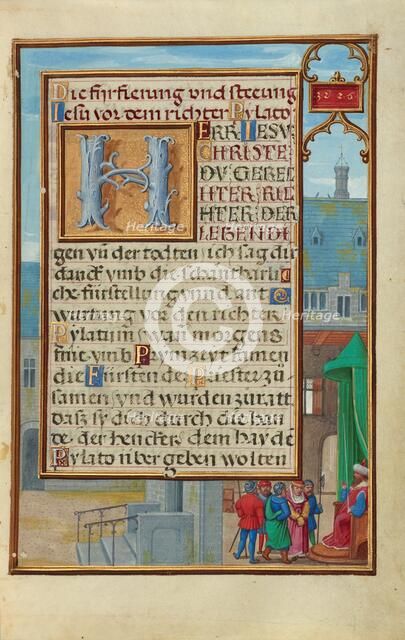 Die fürfierung vnd steeung
Jesu vor dem richter Pylato
HERR IESV
CHRISTE
DV GEREC
HTER RIC
HTER DER
LEBENDI
gen vn̄ der todten ich sag dir
danck vmb die schantbarli
che fürstellung vnnd ant
wurtung vor den richter
Pylatum da man morgens
frue vmb Prymzeyt kamen
die Fürsten der Priester zu
samen vnd wurden zu ratt
das sy dich durch die han
de der hencker dem hayde
Pylato über geben wolten